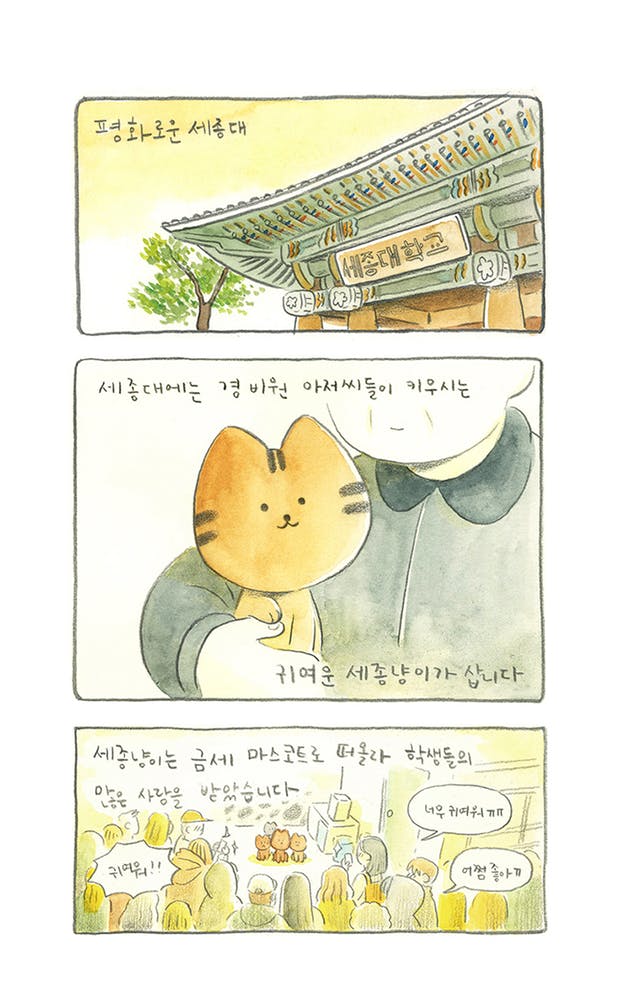 평화로운 세종대
세종대학교
세종대에는 경비원 아저씨들이 키우시는
귀여운 세종냥이가 삽니다
세종냥이는 금세 마스코트로 떠올라 학생들의
많은 사랑을 받았습니다
너무 귀여워ㅠㅠ
귀여워!!
어쩜 좋아ㅠ